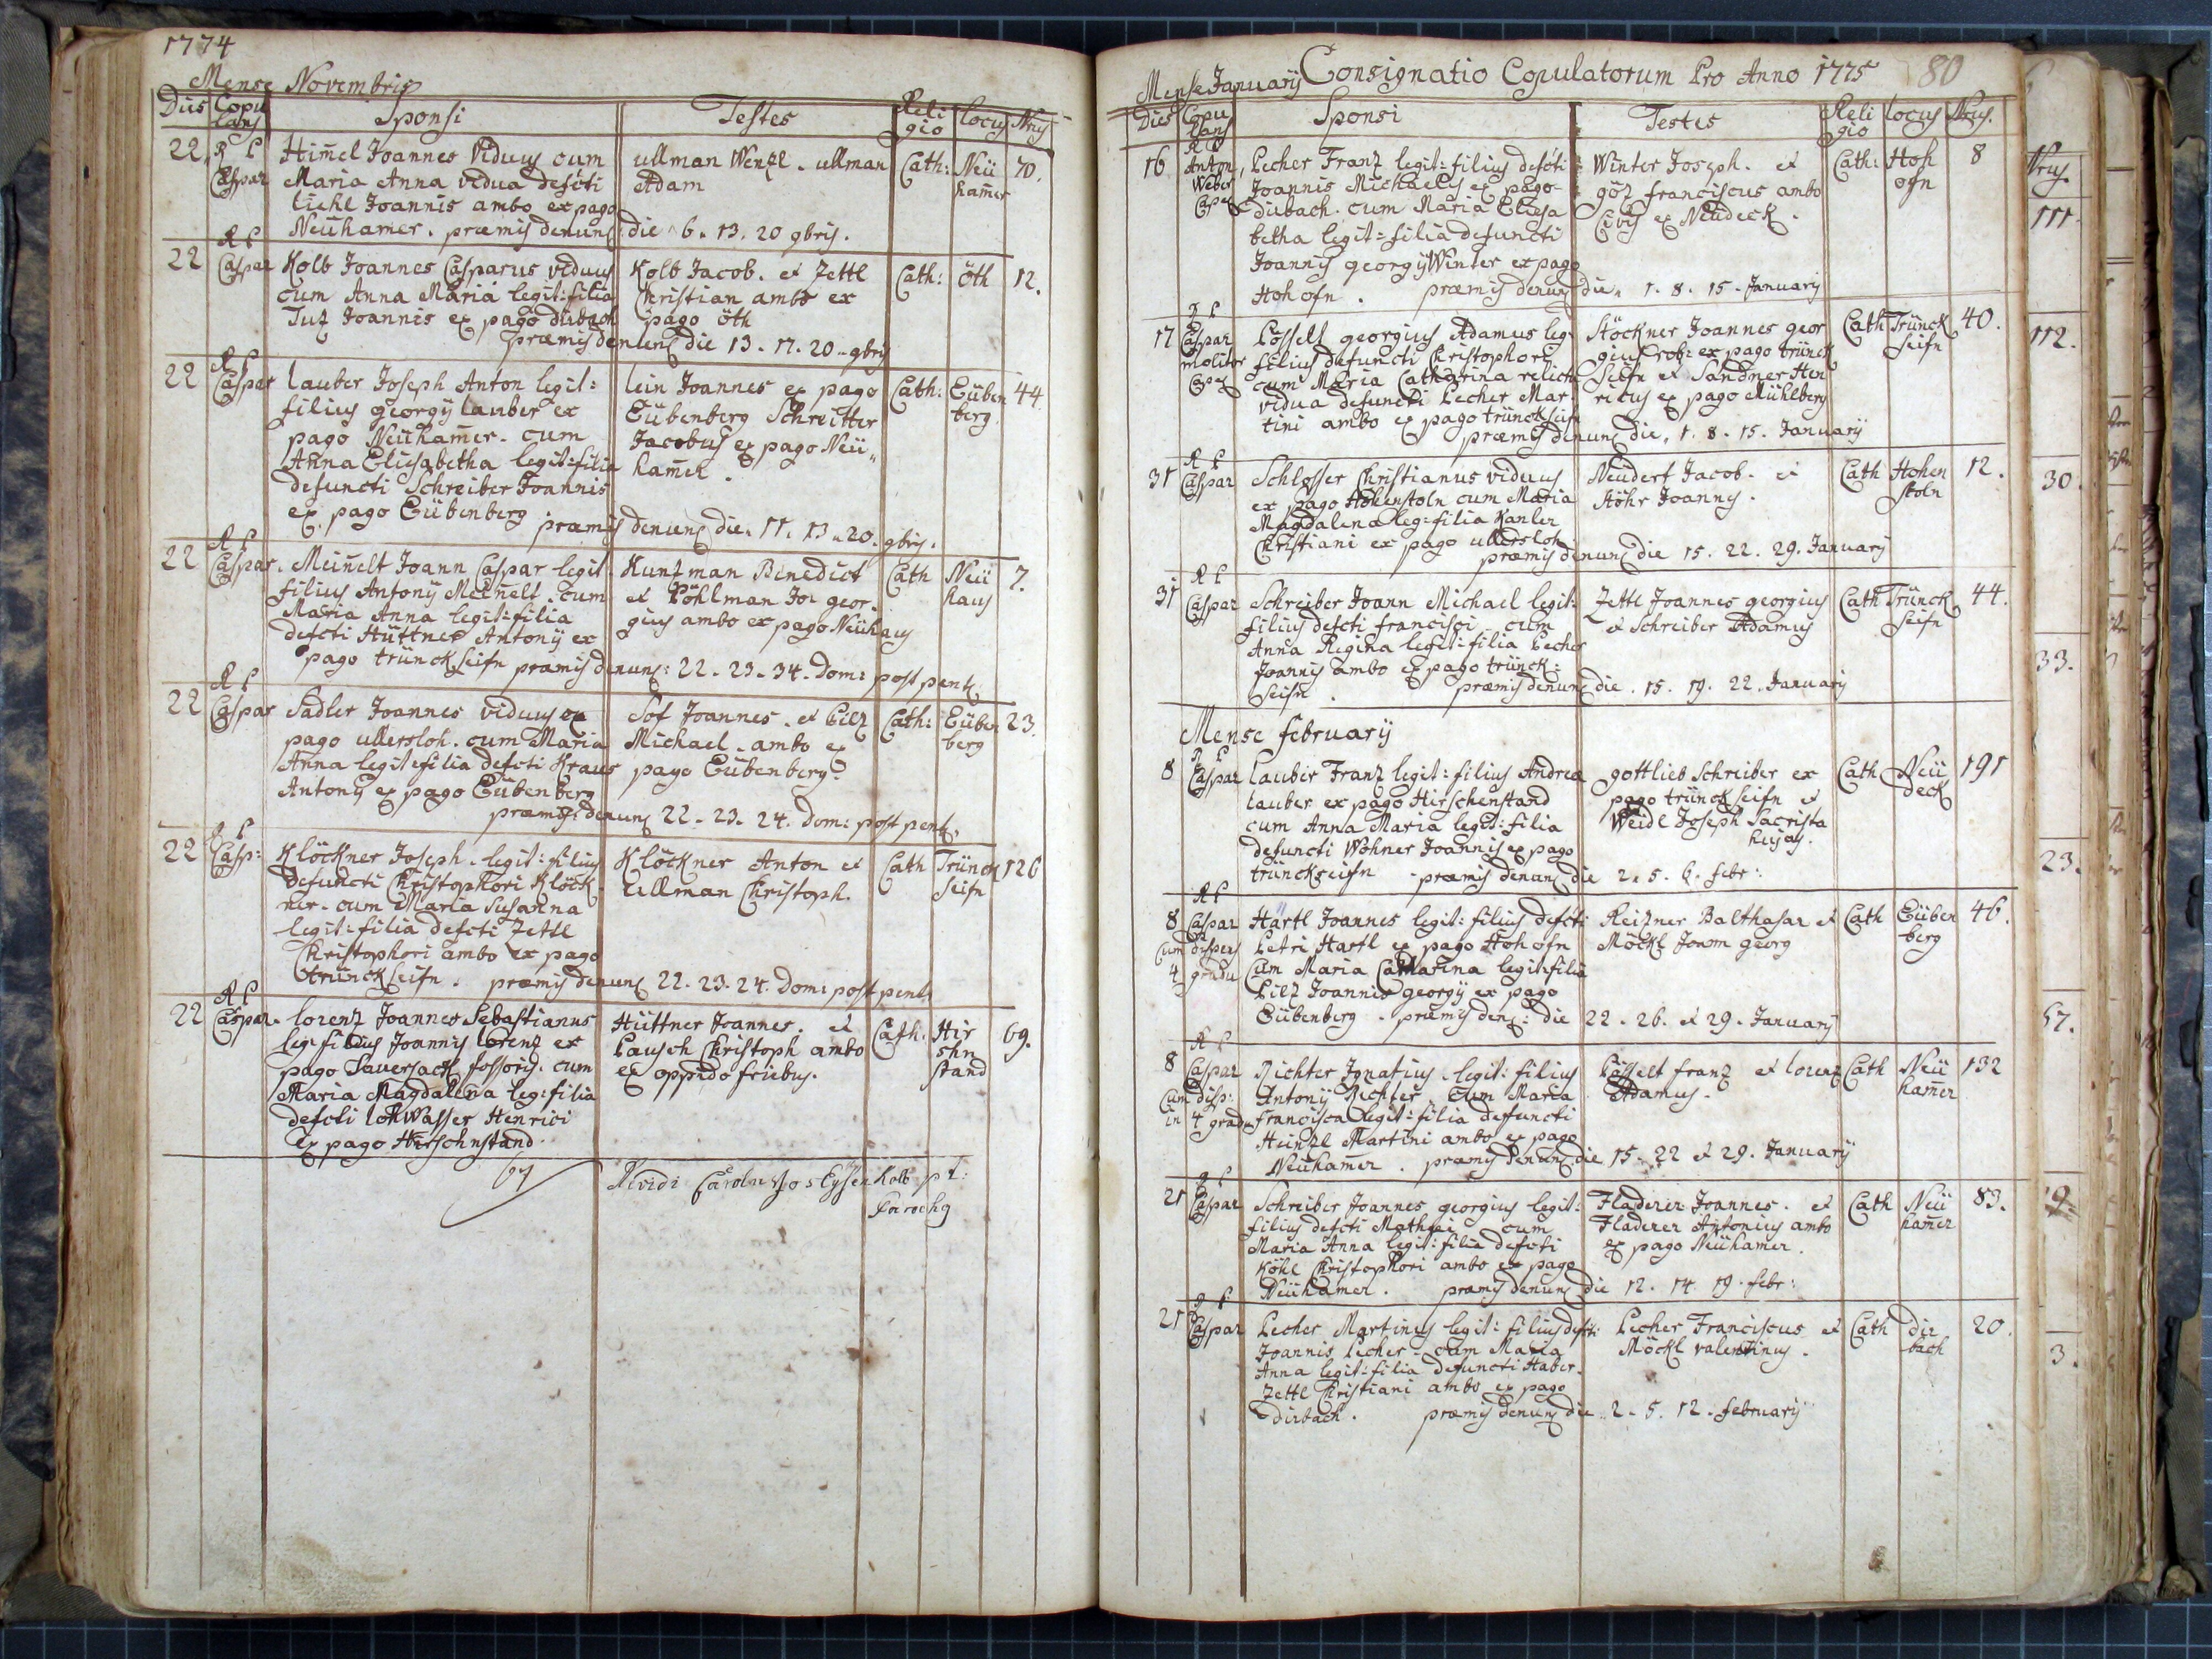 1774
Mense Novembris
Dies Copulans Sponsi Testes Religio Locus Nrus
22 R P Caspar
Him̄el Joannes Viduus cum
Maria Anna vidua defcti
Joannis ambo ex pago
Neühamer. præmis denunc die 6. 13. 20 9bris.
ullman Wenzl. ullman
Adam
Cath: Neü ham̄er 70.
22 R P Caspar
Kolb Joannes Casparus viduus
cum Anna Maria legit: filia
Tuz Joannis ex pago dürbach
præmis denunc die 13. 17. 20 9bris
Kolb Jacob. et Zettl
Christian ambo ex
pago öth
Cath: öth 12.
22 R P Caspar
lauber Joseph Anton legit:
filius georgÿ lauber ex
pago Neüham̄er. cum
Anna Eliesabetha legit: filia
defuncti Schreiber Joannis
ex pago Eübenberg præmis denunc die 11. 13. 20. 9bris.
lein Joannes ex pago
Eübenberg Schreitter
Jacobus ex pago Neü
ham̄er.
Cath: Eüben berg. 44.
22 R P Caspar.
Mein̄elt Joann Caspar legit.
filius Antonÿ Mein̄elt. cum
Maria Anna legit: filia
defcti Hüttner Antonÿ ex
pago trünckseifn præmis denunc: 22. 23. 34. Dom: post pent.
Kunzman Benedict
et Pöhlman Jo: geor-
gius ambo ex pago Neühaus
Cath Neü haus 7.
22 R P Caspar
Sadler Joannes viduus ex
pago ullersloh. cum Maria
Anna legit: filia defcti Kraus
Antonÿ ex pago Eübenberg
præmis: denunc 22. 23. 24. Dom: post pent.
Sof Joannes. et Pilz
Michael. ambo ex
pago Eübenberg.
Cath: Eüben berg 23.
22 R P Casp:
Klöckner Joseph. legit: filius
defuncti Christophori Klöck-
ner. cum Maria Susanna
legit: filia defcti Zettl
Christophori ambo ex pago
trünckseifn. præmis denunc 22. 23. 24. Dom: post pent.
Klöckner Anton et
Ullman Christoph.
Cath Trünck seifn 126
22 R P Caspar.
lorenz Joannes Sebastianus
leg: filius Joannis lorenz ex
pago Sauersack fossoris. cum
Maria Magdalena leg: filia
defcti lohWasser Henrici
ex pago Hirschnstand.
Hüttner Joannes. et
Pausch Christoph ambo
ex oppido friebus.
Cath. Hir schn stand 69.
Carolus Jos Eysenkolb p t:
Parochg
Mense Januarÿ Consignatio Copulatorum Pro Anno 1775 80
Dies Copulans Sponsi Testes Religio locus Nrus.
16 R P Anton Weber Cap
Pecher Franz legit: filius defcti
Joannis Michaelis ex pago
dirbach. cum Maria Eliesa
betha legit: filia defuncti
Joannis georgÿ Winter ex pago
Hohofn. præmis denunc die 1. 8. 15. Januarÿ
Winter Joseph. et
göz franciscus ambo
Cives ex Neüdeck.
Cath: Hoh ofn 8
17 P Caspar molitor Cap
Pösselt georgius Adamus leg:
filius defuncti Christophori
cum Maria Catharina relicta
vidua defuncti Pecher Mar-
tini ambo ex pago trünckseifn
præmis denunc die, 1. 8. 15. Januarÿ
Stöckner Joannes geor
gius ex pago trünck
seifn et Sandner Hen
ricus ex pago Mühlberg
Cath Trünck seifn 40.
31 R P Caspar
Schlosser Christianus viduus
ex pago Hohenstoln cum Maria
Magdalena leg: filia Kanler
Christiani ex pago ullersloh
præmis denunc die 15. 22. 29. Januarÿ
Neüdert Jacob. et
Höhr Joannes.
Cath Hohen stoln 12.
31 R P Caspar
Schreiber Joann Michael legit:
filius defcti francisci. cum
Anna Regina legit: filia Pecher
Joannis ambo ex pago trünck:
seifn. præmis denunc die. 15. 19. 22. Januarÿ
Zettl Joannes georgius
et Schreiber Adamus
Cath Trünck seifn 44.
Mense februarÿ
8 P Caspar
lauber Franz legit: filius Andrea
lauber ex pago Hirschenstand
cum Anna Maria legit: filia
defuncti Wohner Joannis ex pago
trünckseifn præmis denunc die 2. 5. 6. febr:
gottlieb Schreiber ex
pago trünckseifn et
Weidl Joseph Sacrista
huias.
Cath Neü deck 191
8 R P Caspar cum dispens 4 gradu
Härtl Joannes legit: filius defcti
Petri Hartl ex pago Hohofn
Cum Maria Catharina legit: filia
Pilz Joannis georgÿ ex pago
Eübenberg. præmis denc: die 22. 26. et 29. Januarÿ
Reitzner Balthasar et
Möckl Joann georg
Cath Eüben berg 46.
8 R P Caspar Cum disp: in 4 gradu
Richter Ignatius. legit: filius
Antonÿ Richter. Cum Maria
francisca legit: filia defuncti
Heinzl Martini ambo ex pago
Neüham̄er. præmis denunc die 15. 22 et 29. Januarÿ
Pösselt franz et lorenz
Adamus.
Cath Neü ham̄er 132
21 P Caspar
Schreiber Joannes georgius legit:
filius defcti Mathæi cum
Maria Anna legit: filia defcti
Köhl Christophori ambo ex pago
Neühamer. præmis denunc die 12. 14 19. febr:
Fladerer Joannes. et
Fladerer Antonius ambo
ex pago Neühamer.
Cath Neü ham̄er 83.
21 P Caspar
Pecher Martinus legit: filius defcti
Joannis Pecher. cum Maria
Anna legit: filia defuncti Haber-
Zettl Christiani ambo ex pago
Dirbach. præmis denunc die 2. 5. 12. februarÿ
Pecher Franciscus et
Möckl valentinus.
Cath dir bach 20.
Nrus.
111.
112.
30.
33.
23.
57.
3.